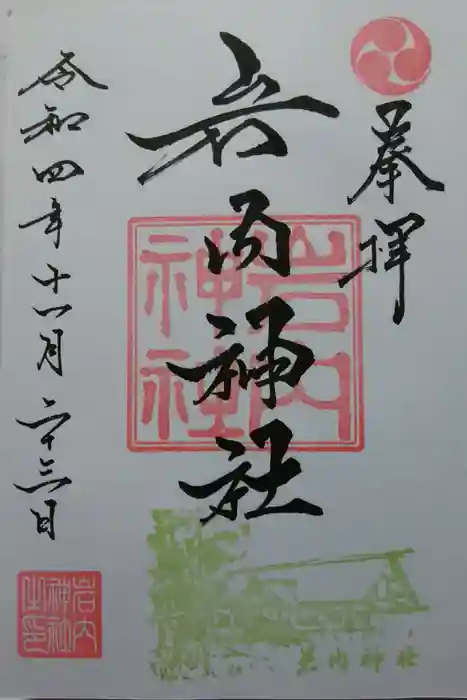 奉拝
岩内神社
岩内神社
令和四年十一月二十三日
岩内神社
岩内神社之印